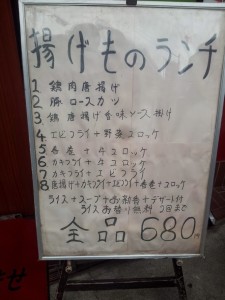 揚げものランチ
1 鶏肉唐揚げ
2 豚ロースカツ
3 鶏唐揚げ香味ソース掛け
4 エビフライ+野菜コロッケ
5 春巻+コロッケ
6 カキフライ+コロッケ
7 カキフライ+エビフライ
8 唐揚げ+カキフライ+エビフライ+春巻+コロッケ
ライス+スープ+お新香+デザート付
ライスお替り無料 2回まで
全品 680円
せ